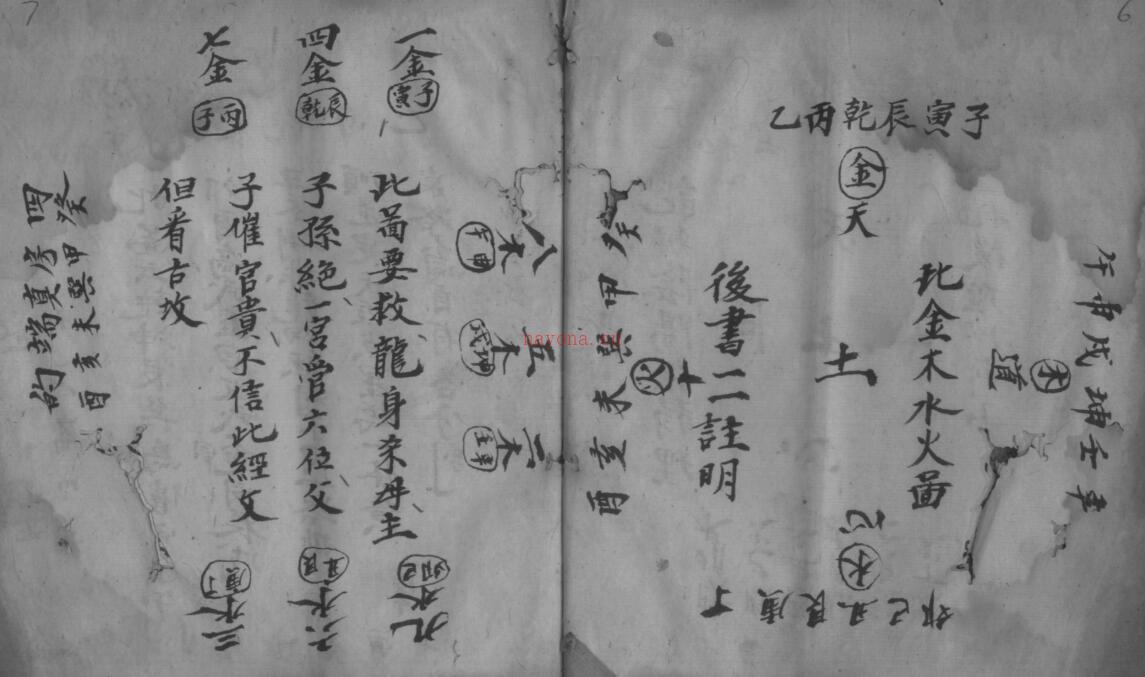 6
子寅辰乾丙乙
金
天
午申戌坤壬辛
木
道
此金木水火畐
土
後書二註明
十
火
癸甲巽未亥酉
水
卯巳丑艮庚丁
八木
午申
五木
戌坤
二木
壬辛
7
一金
子寅
四金
辰乾
七金
丙子
此畐要救龍身來母主
子孫絶一宮管六位父
子催官貴不信此經文
但看古坟
九水
卯巳
六水
丑艮
三水
庚丁
癸甲巽未亥酉
的端真
nayona.ru